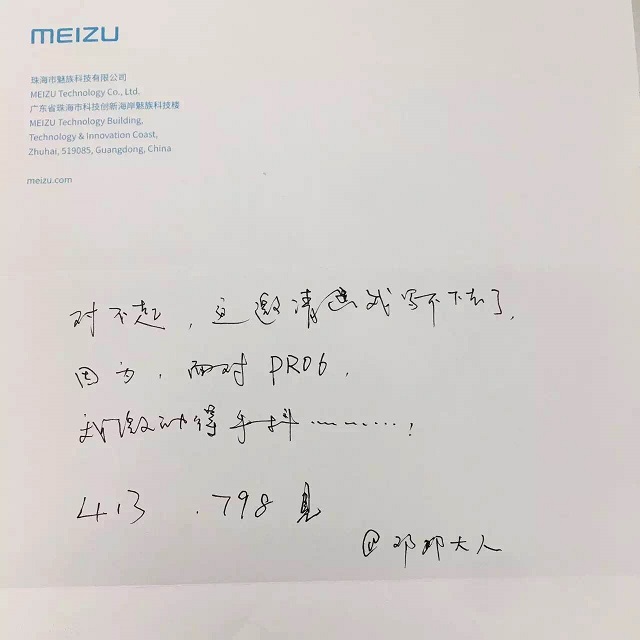 MEIZU
珠海市魅族科技有限公司
MEIZU Technology Co., Ltd.
广东省珠海市科技创新海岸魅族科技楼
MEIZU Technology Building,
Technology & Innovation Coast,
Zhuhai, 519085, Guangdong, China
meizu.com
对不起，这邀请函我写不下去了，
因为，面对 PRO6，
我激动得手抖………！
413 .798 见
@邓邓大人